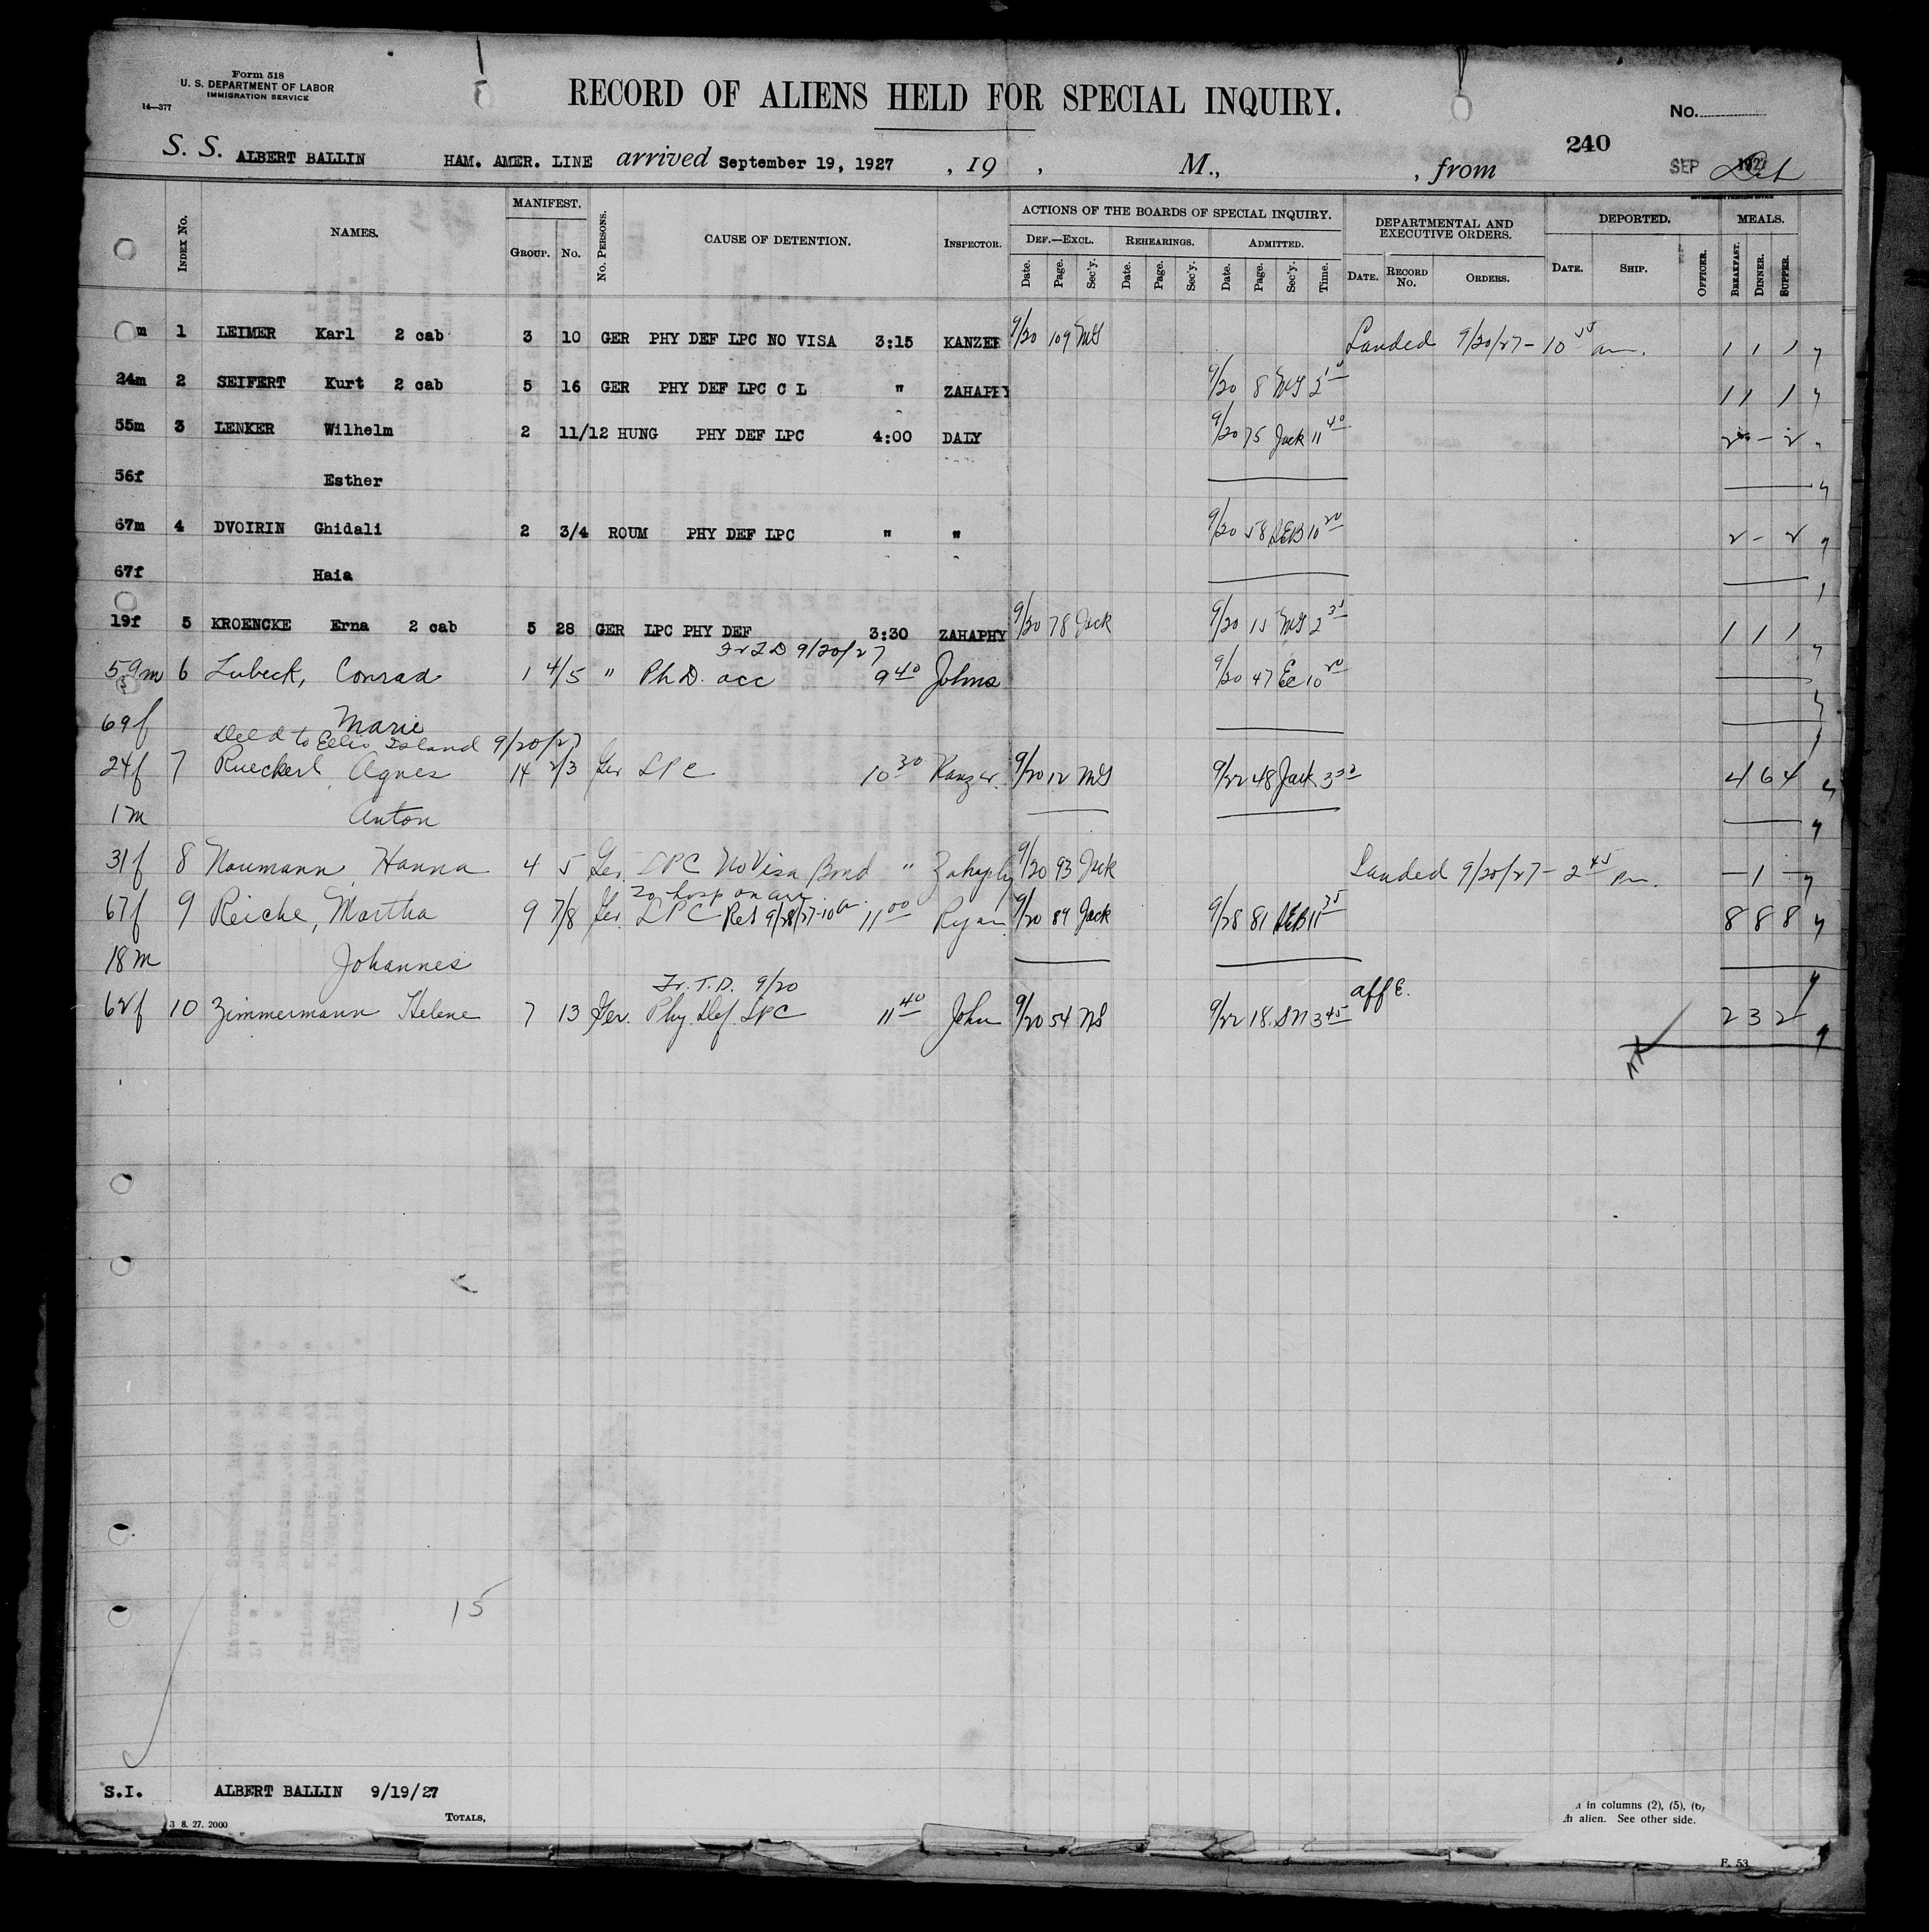 Form 518
U. S. DEPARTMENT OF LABOR
IMMIGRATION SERVICE
14—377
RECORD OF ALIENS HELD FOR SPECIAL INQUIRY.
No.
240
S. S. ALBERT BALLIN HAM. AMER. LINE arrived September 19, 1927 , 19 , M., , from SEP 1927
INDEX No. NAMES. MANIFEST. GROUP. No. No. PERSONS. CAUSE OF DETENTION. INSPECTOR. ACTIONS OF THE BOARDS OF SPECIAL INQUIRY. DEPARTMENTAL AND EXECUTIVE ORDERS. DEPORTED. MEALS.
DEF.—EXCL. REHEARINGS. ADMITTED.
Date. Page. Sec'y. Date. Page. Sec'y. Date. Page. Sec'y. Time. DATE. RECORD No. ORDERS. DATE. SHIP. OFFICER. BREAKFAST. DINNER. SUPPER.
m 1 LEIMER Karl 2 cab 3 10 GER PHY DEF LPC NO VISA 3:15 KANZER 9/20 109 MG Landed 9/20/27 - 10 55 am. 1 1 1
24m 2 SEIFERT Kurt 2 cab 5 16 GER PHY DEF LPC C L " ZAHAPHY 9/20 8 MG 1 1 1
55m 3 LENKER Wilhelm 2 11/12 HUNG PHY DEF LPC 4:00 DALY 9/20 75 Jack 11 40 2 - 2
56f Esther
67m 4 DVOIRIN Ghidali 2 3/4 ROUM PHY DEF LPC " " 9/20 58 DEB 10 20 2 - 2
67f Haia
19f 5 KROENCKE Erna 2 cab 5 28 GER LPC PHY DEF 3:30 ZAHAPHY 9/20 78 Jack 9/20 15 MG 2 35 1 1 1
9/20/27
59m 6 Lubeck, Conrad 1 4/5 " Ph D. acc 9 40 Johns 9/20 47 Ec 10 20
69f Marie
Del'd to Ellis Island 9/20/27
24f 7 Rueckerl, Agnes 14 2/3 Ger LPC 10 30 Kanzer. 9/20 12 MG 9/22 48 Jack 3 30 4 6 4
1m Anton
31f 8 Naumann, Hanna 4 5 Ger. LPC No Visa Bond " Zahaphy 9/20 93 Jack Landed 9/20/27 - 2 45 Pm. - 1 -
To hosp on arr
67f 9 Reiche, Martha 9 7/8 Ger. LPC Ret 9/28/27-10 a. 11 00 Ryan 9/20 89 Jack 9/28 81 DEB 11 35 8 8 8
18m Johannes
Fr. T.D. 9/20
aff E.
62f 10 Zimmermann Helene 7 13 Ger. Phy. Def. LPC 11 40 John 9/20 54 NS 9/22 18 SN 3 45 2 3 2
15
S.I. ALBERT BALLIN 9/19/27
TOTALS,
3 8. 27. 2000
in columns (2), (5), (6)
ch alien. See other side.
F. 53